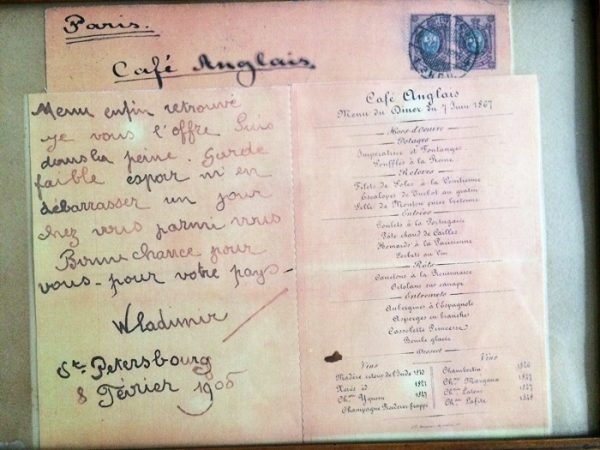 Paris.
Café Anglais.
Menu enfin retrouvé
je vous l'offre Suis
dans la peine. Garde
faible espoir m'en
débarrasser un jour
chez vous parmi vous
Bonne chance pour
vous - pour votre pays -
Wladimir
St. Petersbourg
8 Février 1905
Café Anglais
Menu du Diner du 7 Juin 1867
Hors-d'oeuvre
Potages
Impératrice et Fontanges
Soufflés à la Reine
Relevés
Filets de Soles à la Vénitienne
Escalopes de Turbot au gratin
Selle de Mouton purée bretonne
Entrées
Poulets à la Portugaise
Pâté chaud de Cailles
Homards à la Parisienne
Sorbets au Vin
Rôts
Canetons à la Rouennaise
Ortolans sur canapé
Entremets
Aubergines à l'Espagnole
Asperges en branches
Cassolette Princesse
Bombe glacée
Dessert
Vins
Madère retour de l'Inde 1810
Xérès 1821
Chau Yquem 1847
Champagne Roederer frappé
Vins
Chambertin 1846
Chau Margaux 1847
Chau Latour 1847
Chau Lafite 1848